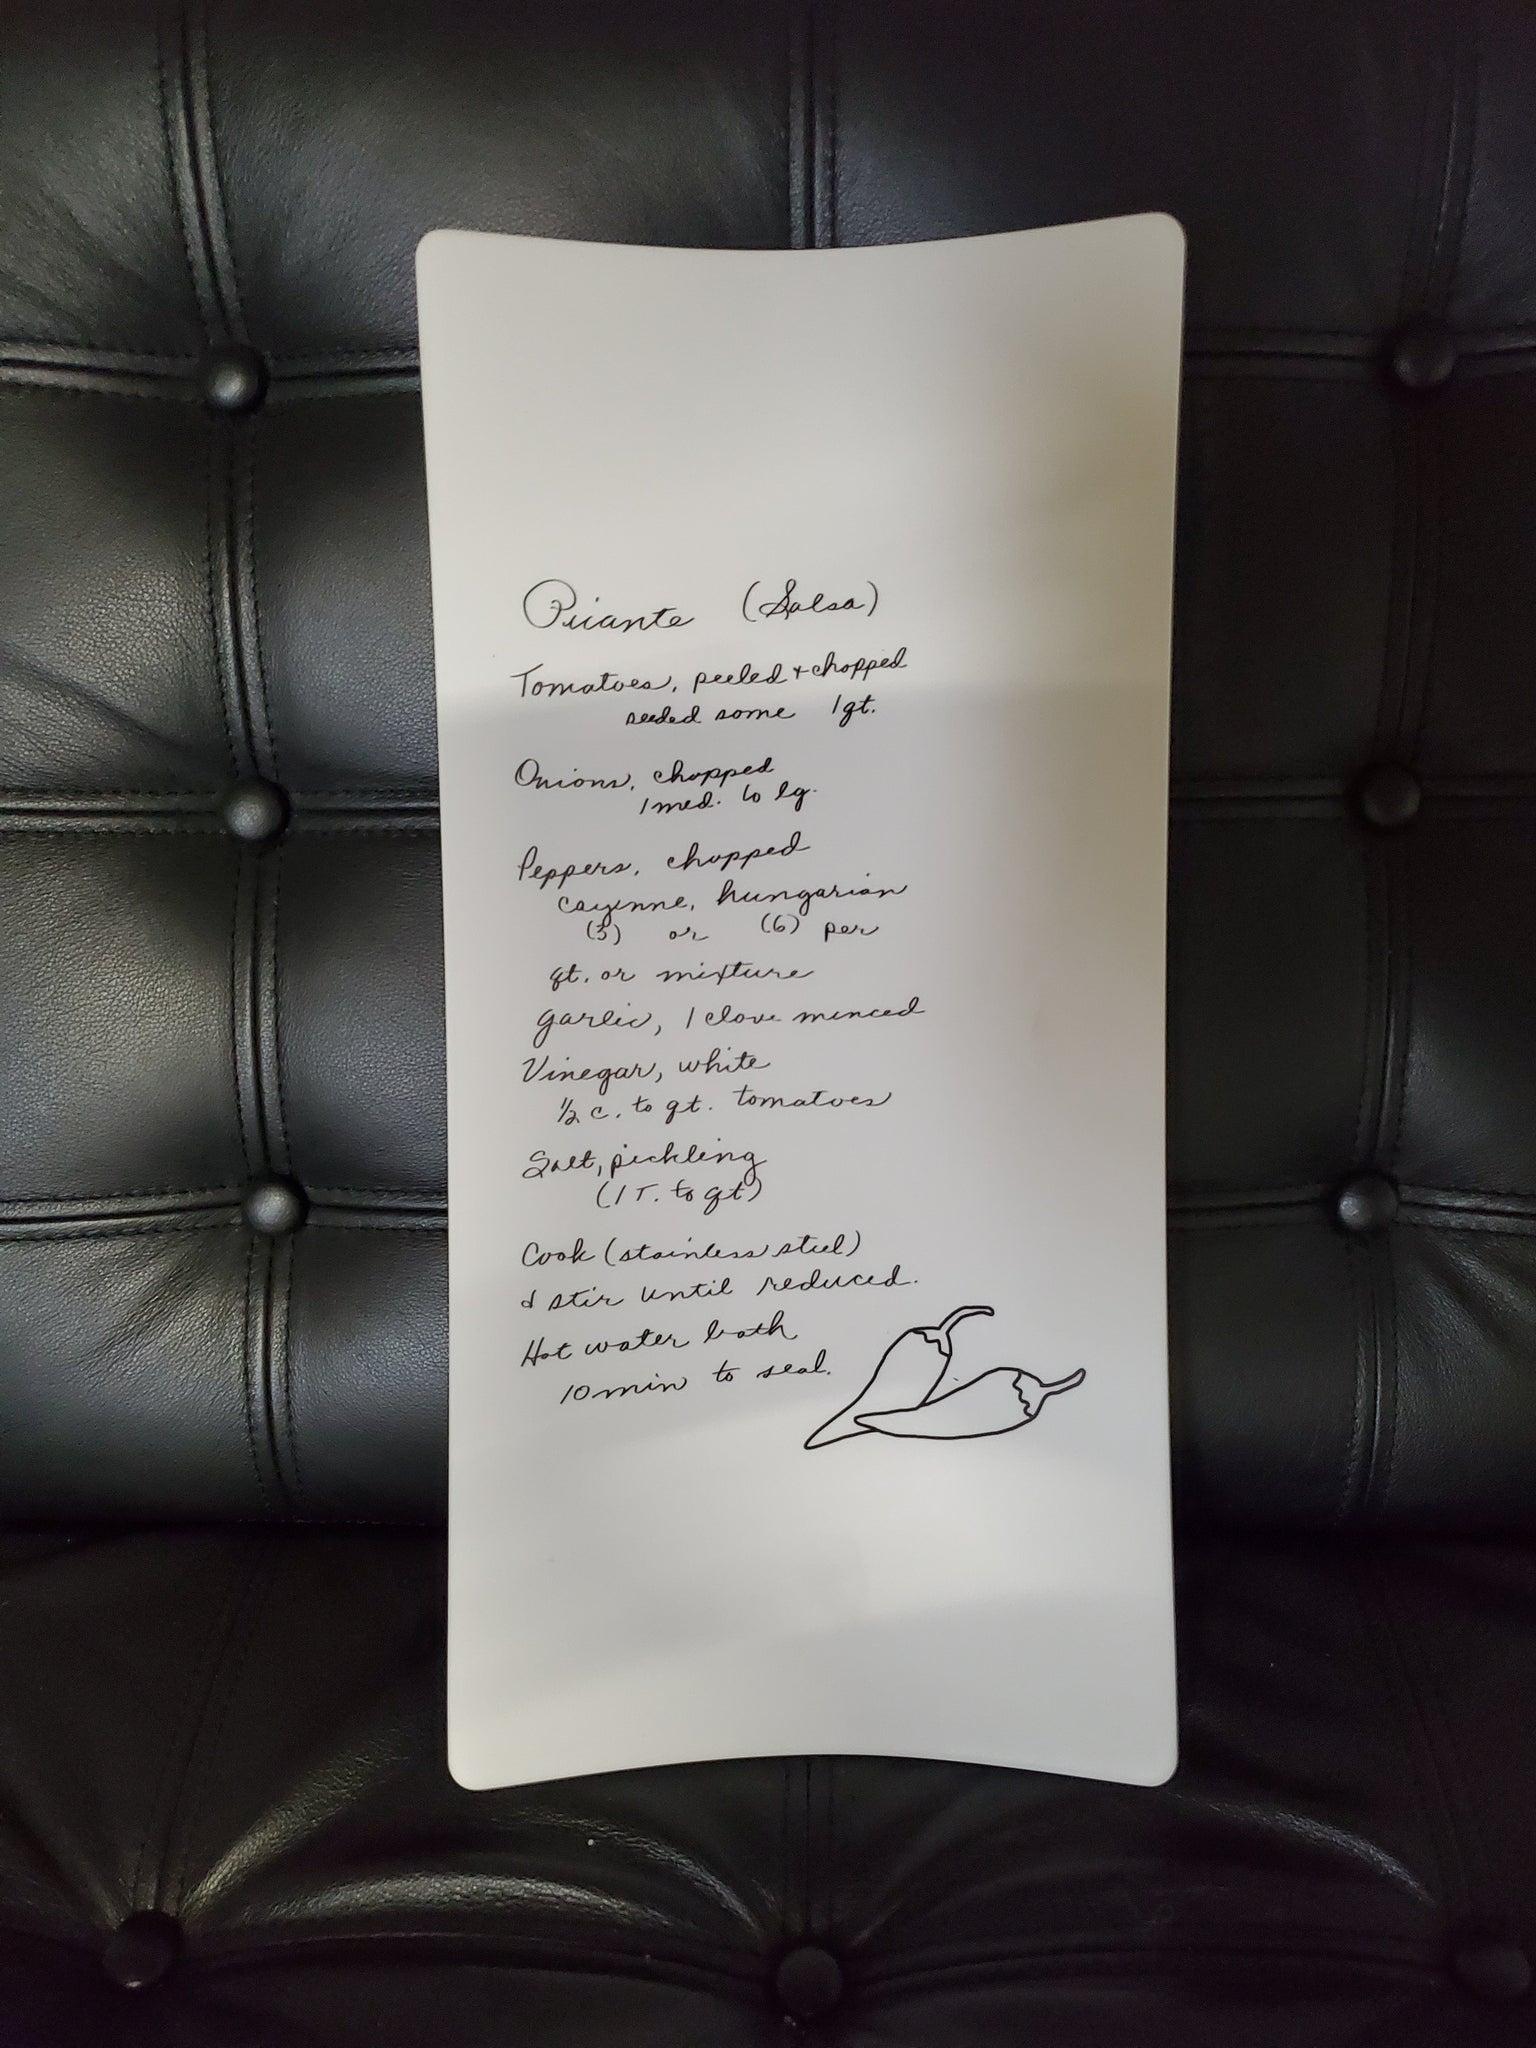 Piiante (Salsa)
Tomatoes, peeled + chopped
seeded some 1 qt.
Onions, chopped
1 med. to lg.
Peppers, chopped
cayenne, hungarian
(3) or (6) per
qt. or mixture
garlic, 1 clove minced
Vinegar, white
1/2 c. to qt. tomatoes
Salt, pickling
(1 T. to qt)
Cook (stainless steel)
& stir until reduced.
Hot water bath
10 min to seal.